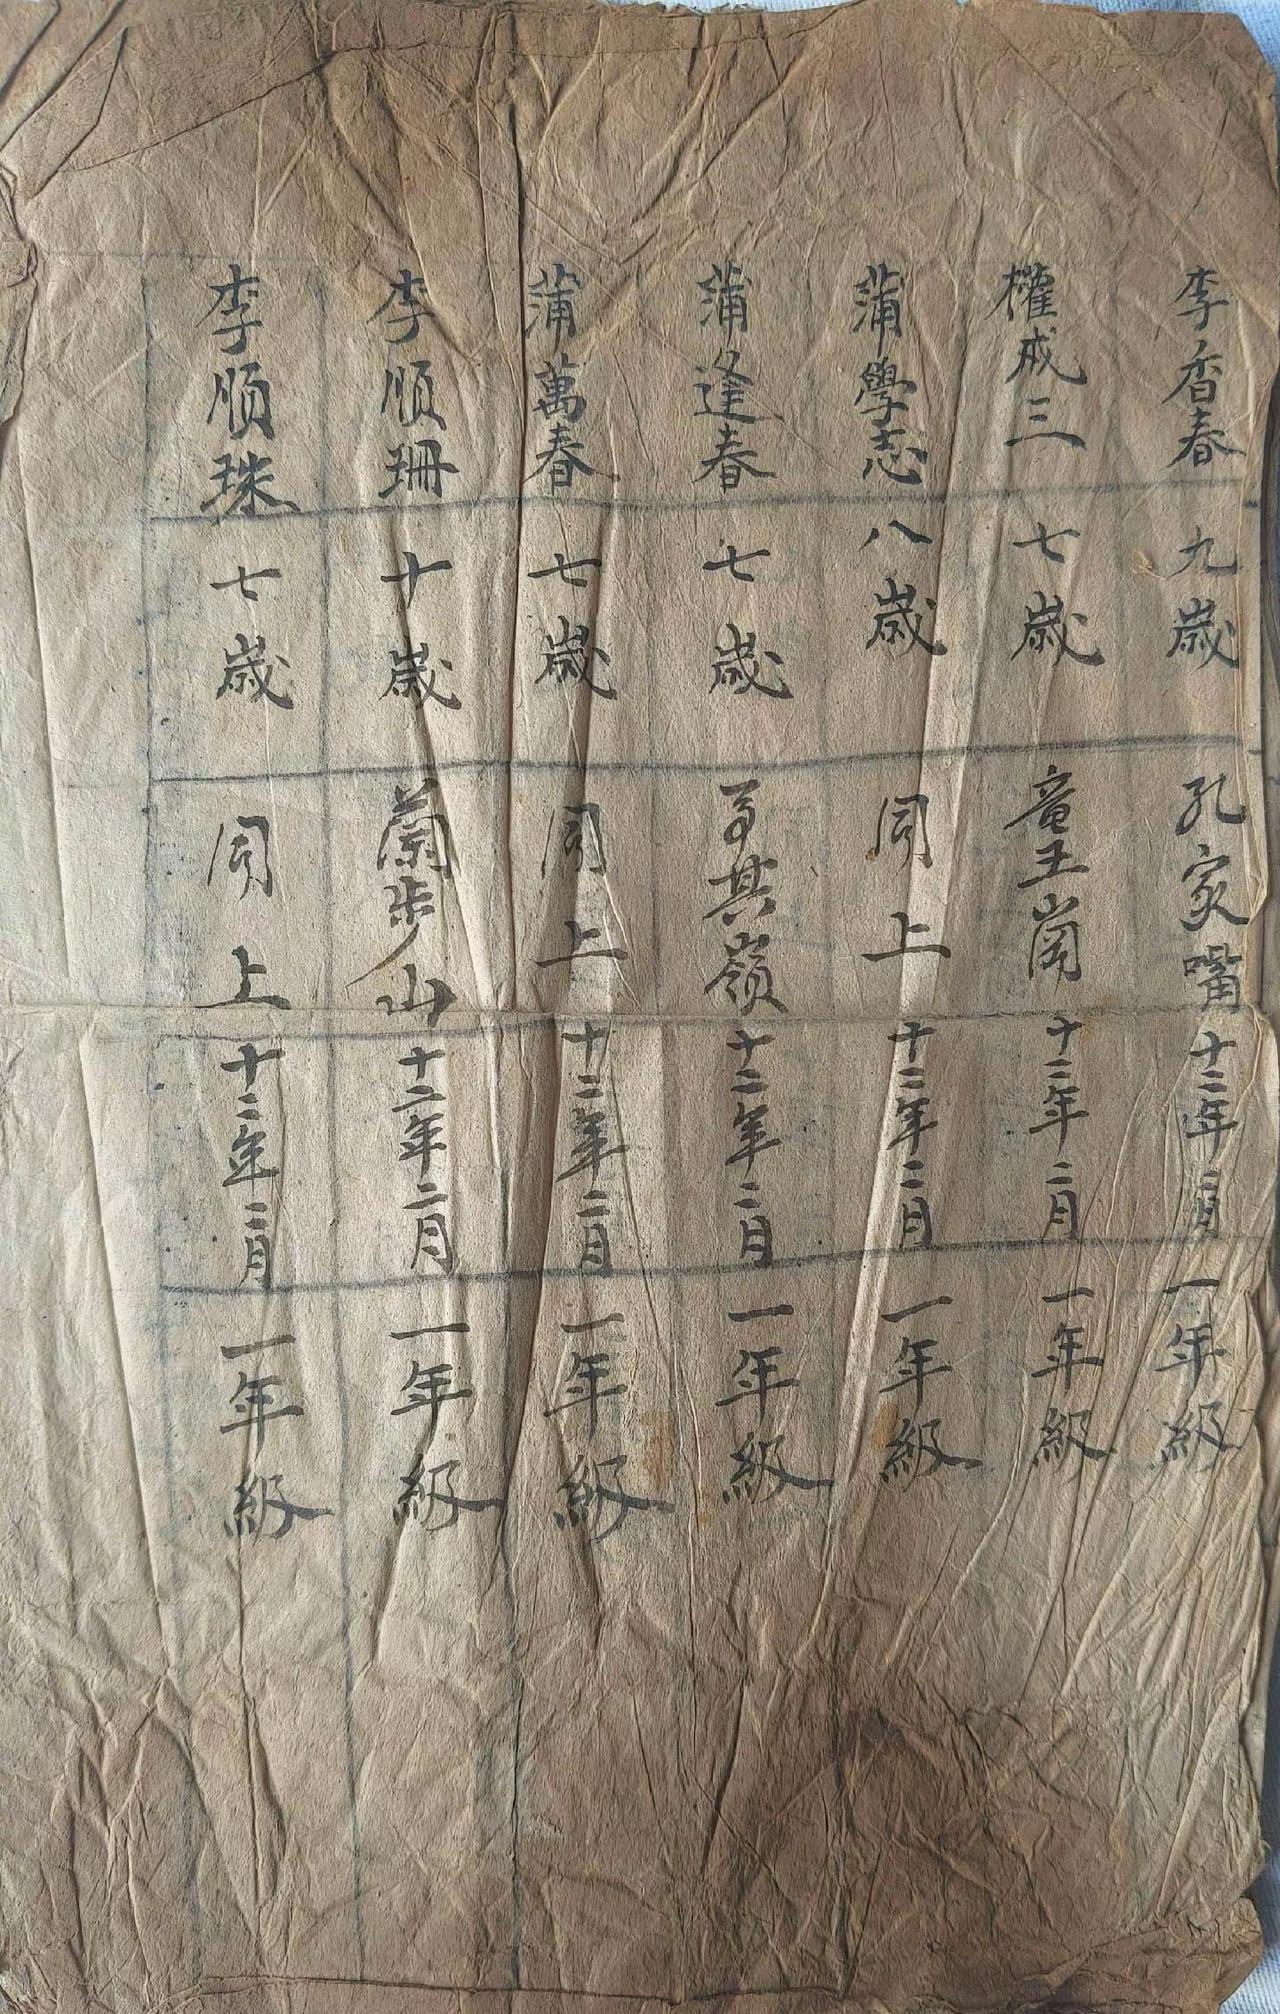 李香春 九歲 孔家嘴 十二年二月 一年級
權成三 七歲 竜王崗 十二年二月 一年級
蒲學志 八歲 同上 十二年二月 一年級
蒲逢春 七歲 其嶺 十二年二月 一年級
蒲萬春 七歲 同上 十二年二月 一年級
李順珊 十歲 蘭步山 十二年二月 一年級
李順珠 七歲 同上 十二年二月 一年級